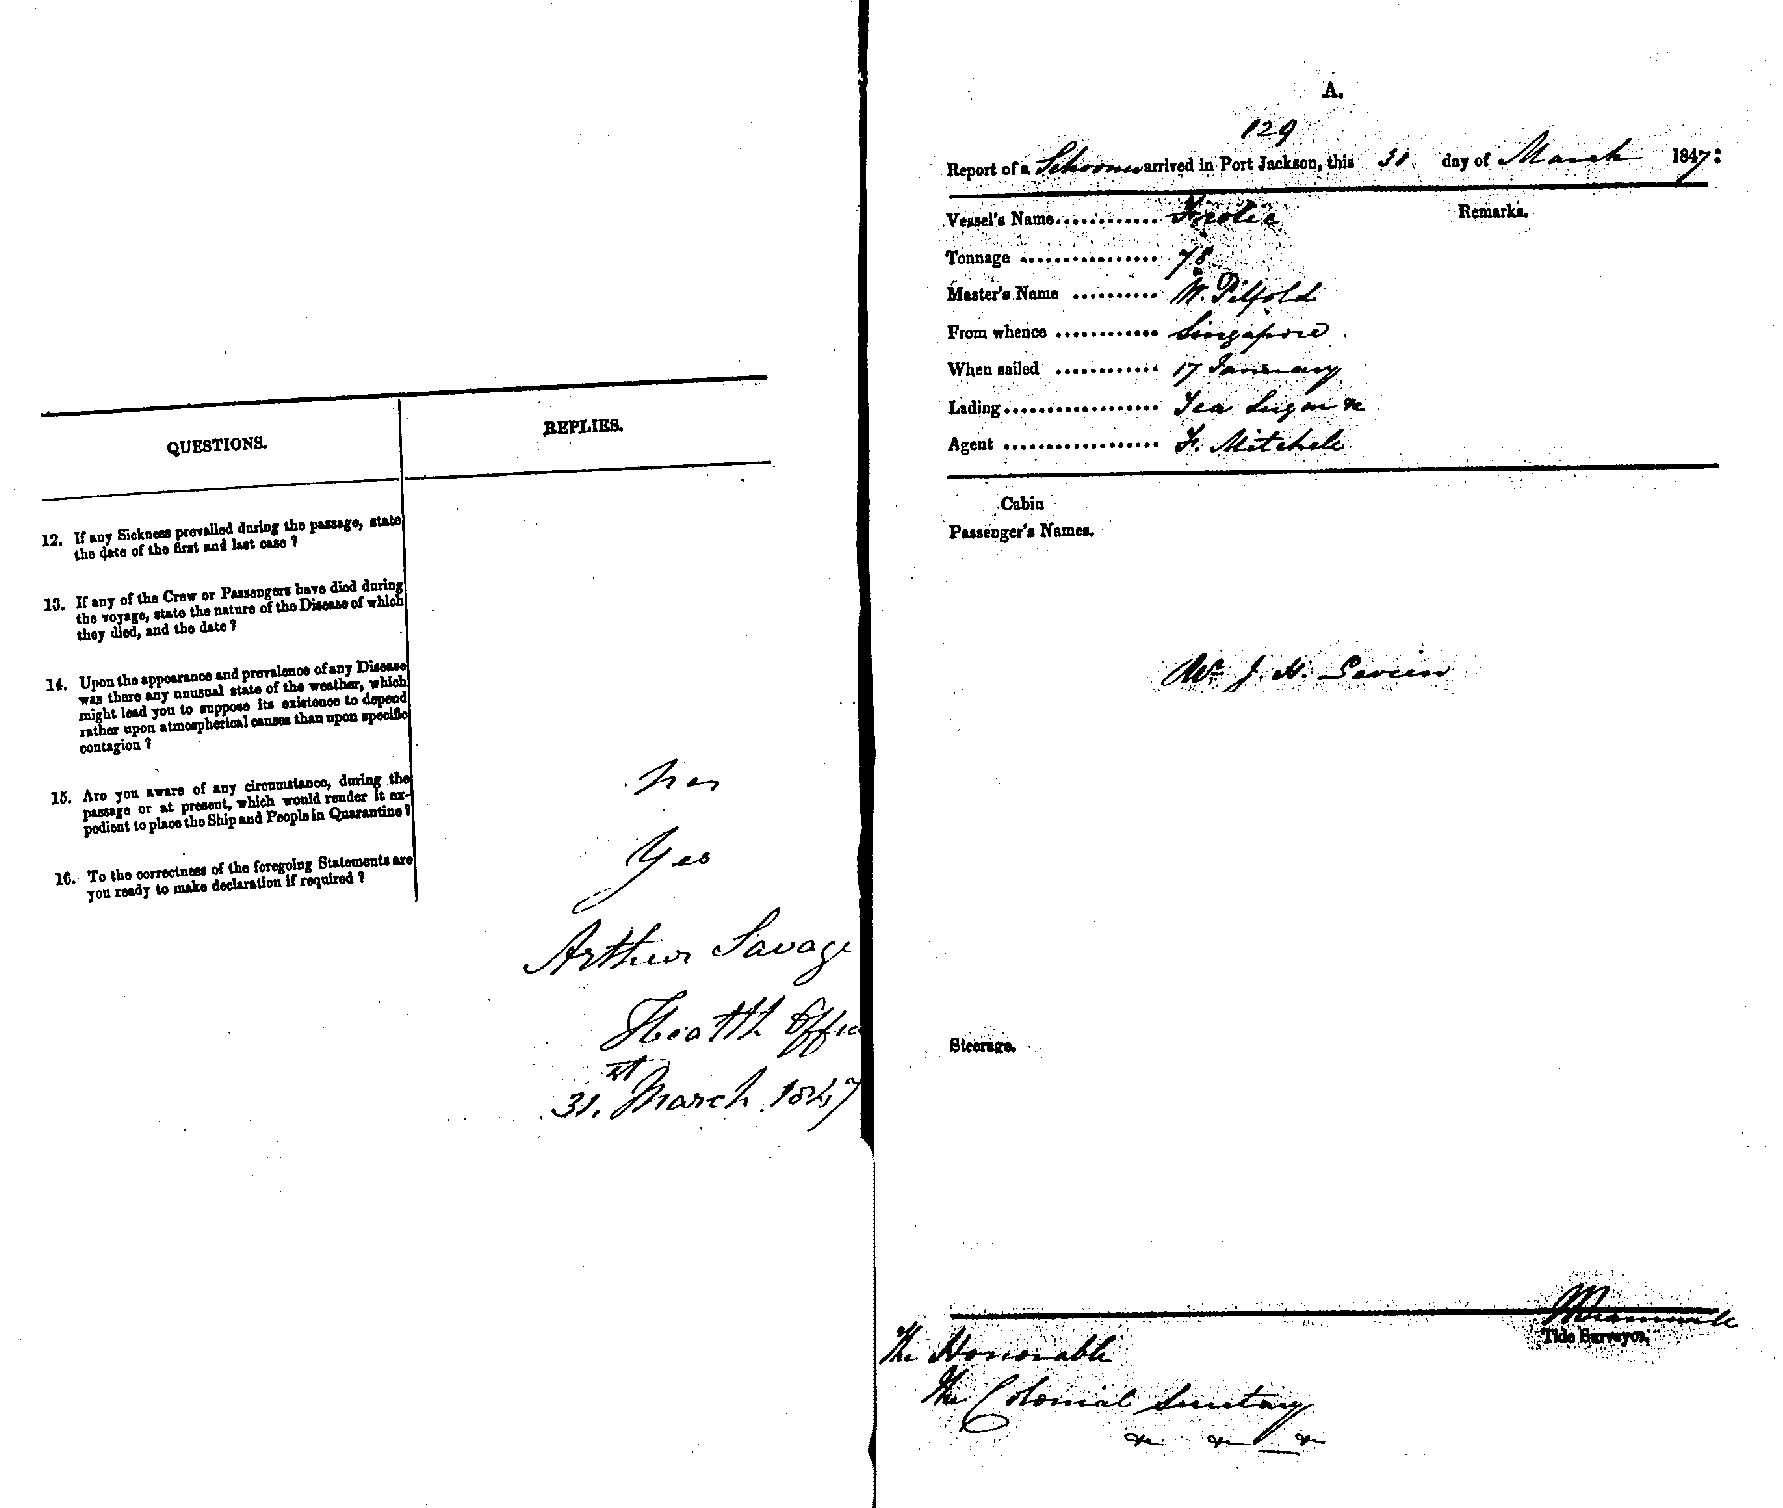 QUESTIONS.
REPLIES.
12. If any Sickness prevailed during the passage, state
the date of the first and last case ?
13. If any of the Crew or Passengers have died during
the voyage, state the nature of the Disease of which
they died, and the date ?
14. Upon the appearance and prevalence of any Disease
was there any unusual state of the weather, which
might lead you to suppose its existence to depend
rather upon atmospherical causes than upon specific
contagion ?
15. Are you aware of any circumstance, during the
passage or at present, which would render it ex-
pedient to place the Ship and People in Quarantine ?
16. To the correctness of the foregoing Statements are
you ready to make declaration if required ?
Yes
Arthur Savage
Health Offic
31.st March 1847
A.
129
Report of a Schooner arrived in Port Jackson, this 31 day of March 1847:
Remarks.
Vessel's Name............ Frolic
Tonnage ................ 78
Master's Name .......... M. Pilfold
From whence ............ Singapore
When sailed ............ 17 January
Lading.................. Tea Sugar &c
Agent .................. F. Mitchell
Cabin
Passenger's Names.
Mr J. H.
Steerage.
Tide Surveyor.
The Honorable
The Colonial Secretary
&c &c &c